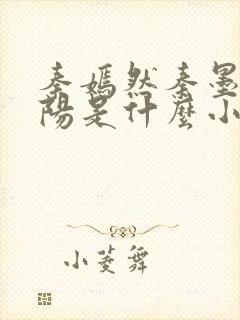 秦嫣然秦墨
陽是什麼小
小菱舞